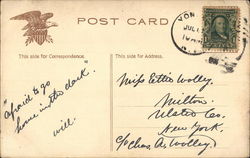 POST CARD
This side for Correspondence.
This side for Address.
"afraid to go
home in the dark."
will.
Miss Ettie Wolley.
Milton.
Ulster Co.
New York.
c/o Chas. A. Wolley